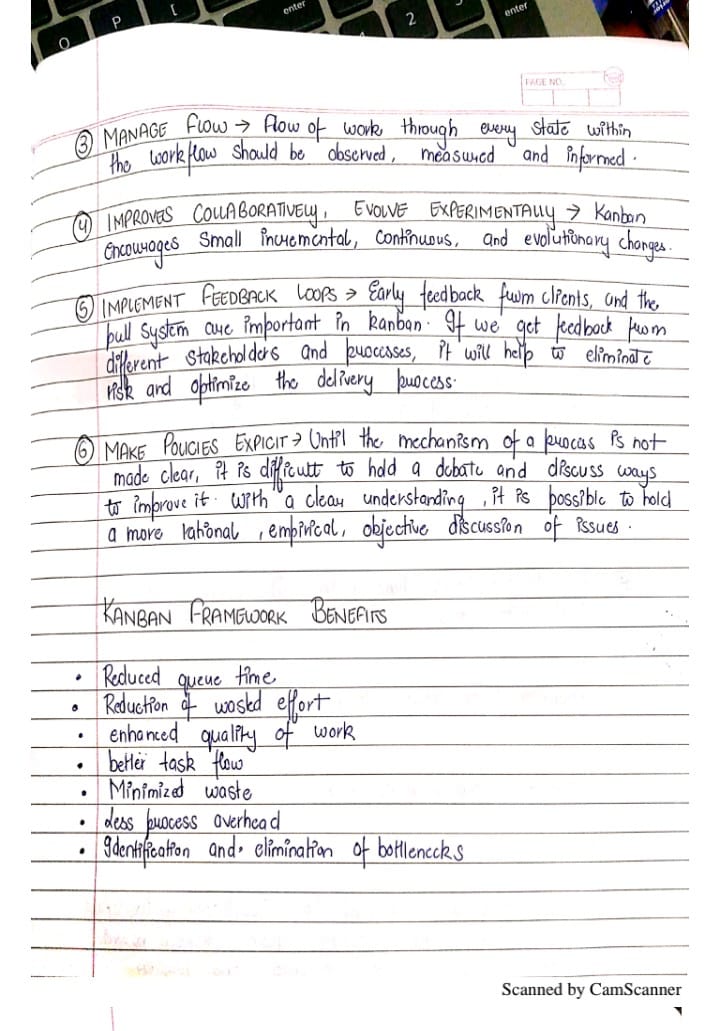 O P [ enter 2 enter
PAGE NO.
③ MANAGE Flow → Flow of work through every state within
the workflow should be observed, measured and informed.
④ IMPROVES COLLABORATIVELY, EVOLVE EXPERIMENTALLY → Kanban
Encourages Small incremental, continuous, and evolutionary changes.
⑤ IMPLEMENT FEEDBACK LOOPS → Early feedback from clients, and the
pull system are important in kanban. If we get feedback from
different stakeholders and processes, it will help to eliminate
risk and optimize the delivery process.
⑥ MAKE POLICIES EXPICIT → Until the mechanism of a process is not
made clear, it is difficult to hold a debate and discuss ways
to improve it. With a clear understanding, it is possible to hold
a more rational, empirical, objective discussion of issues.
KANBAN FRAMEWORK BENEFITS
• Reduced queue time
• Reduction of wasted effort
• enhanced quality of work
• better task flow
• Minimized waste
• Less process overhead
• Identification and elimination of bottlenecks
Scanned by CamScanner